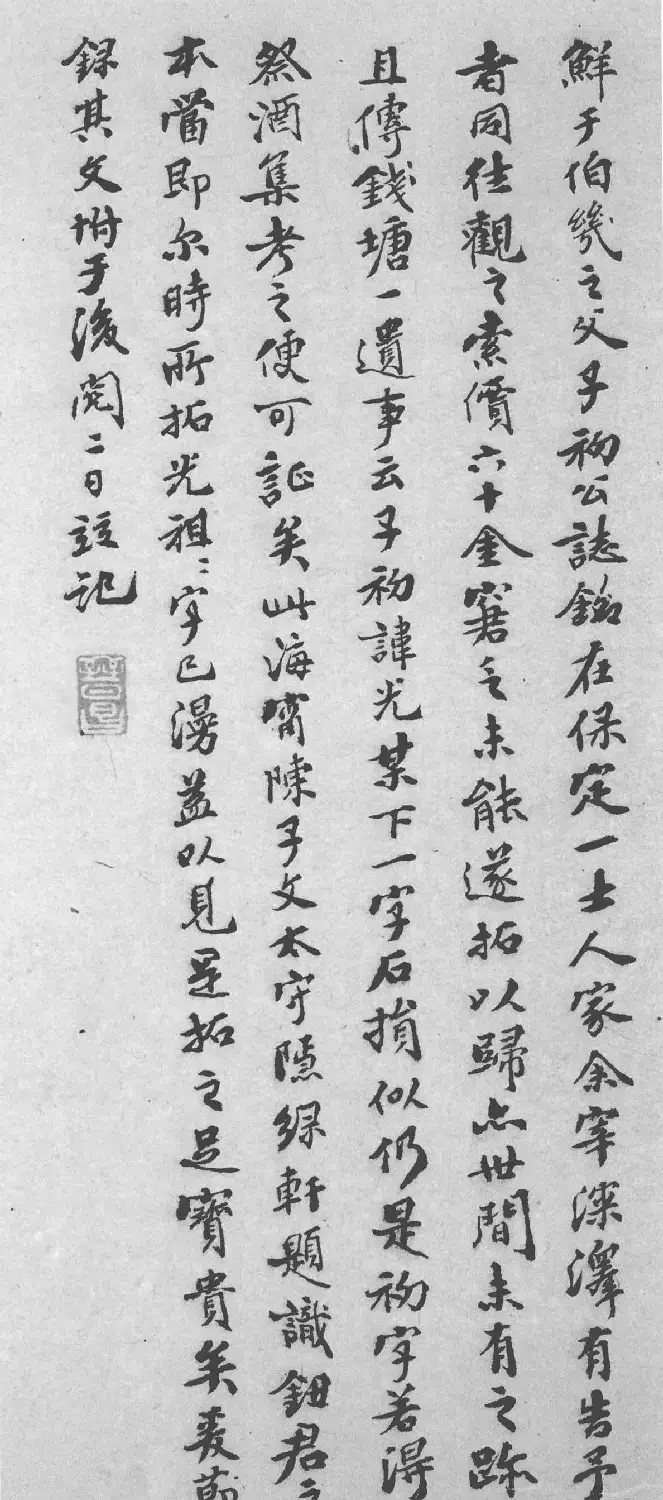 鮮于伯幾之父子初公誌銘在保定一士人家余宰深澤有告予
者同往觀之索價六十金窘乏未能遂拓以歸亦世間未有之跡
且傳錢塘一遺事云子初諱光某下一字石損似仍是初字若得
祭酒集考之便可証矣此海甯陳子文太守隱綠軒題識鈕君之
本當即尔時所拓光祖〻字已漫益以見是拓之足寶貴矣爰
錄其文坿于後閱二日記